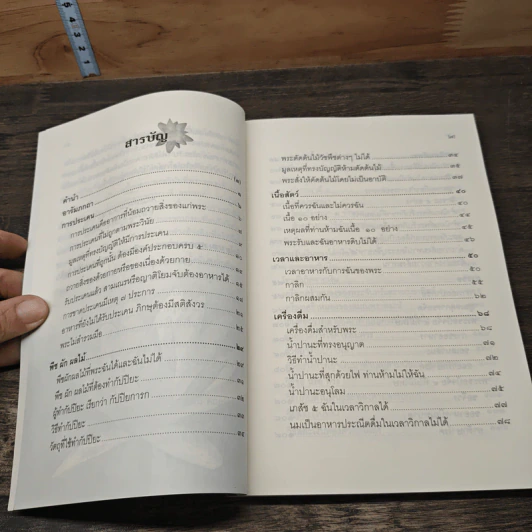 สารบัญ
คำนำ
อารัมภกถา
การประเคน
การประเคนคืออาการที่น้อมถวายสิ่งของแก่พระ
การประเคนที่ไม่ถูกตามพระวินัย
มูลเหตุที่ทรงบัญญัติให้มีการประเคน
การประเคนที่ถูกนั้น ต้องมีองค์ประกอบครบ ๕
ถวายสิ่งของด้วยกายหรือของเนื่องด้วยกาย
รับประเคนแล้ว สามเณรหรือญาติโยมจับต้องอาหารได้
การขาดประเคนมีเหตุ ๘ ประการ
อาหารที่ยังไม่ได้รับประเคน ภิกษุต้องมีสติสังวร
พระไม่สำรวมมือ
พืช ผัก ผลไม้
พืชผักผลไม้ที่พระฉันได้และฉันไม่ได้
พืช ผัก ผลไม้ที่ต้องทำกัปปิยะ
ผู้ทำกัปปิยะ เรียกว่า กัปปิยการก
วิธีทำกัปปิยะ
วัตถุที่ใช้ทำกัปปิยะ
พระตัดต้นไม้วัชพืชต่างๆ ไม่ได้
มูลเหตุที่ทรงบัญญัติห้ามตัดต้นไม้
พระสั่งให้ตัดต้นไม้โดยไม่เป็นอาบัติ
เนื้อสัตว์ ๔๐
เนื้อที่ควรฉันและไม่ควรฉัน
เนื้อ ๑๐ อย่าง
เหตุผลที่ท่านห้ามฉันเนื้อ ๑๐ อย่าง
พระรับและฉันอาหารดิบไม่ได้
เวลาและอาหาร ๕๐
เวลาอาหารกับการฉันของพระ ๕๐
กาลิก ๕๕
กาลิกผสมกัน ๖๒
เครื่องดื่ม ๖๘
เครื่องดื่มสำหรับพระ ๖๘
น้ำปานะที่ทรงอนุญาต ๗๑
วิธีทำน้ำปานะ ๗๒
น้ำปานะที่สุกด้วยไฟ ท่านห้ามไม่ให้ฉัน ๗๔
น้ำปานะอนุโลม ๗๕
เภสัช ๕ ฉันในเวลาวิกาลได้ ๗๗
นมเป็นอาหารประณีตดื่มในเวลาวิกาลไม่ได้ ๗๘